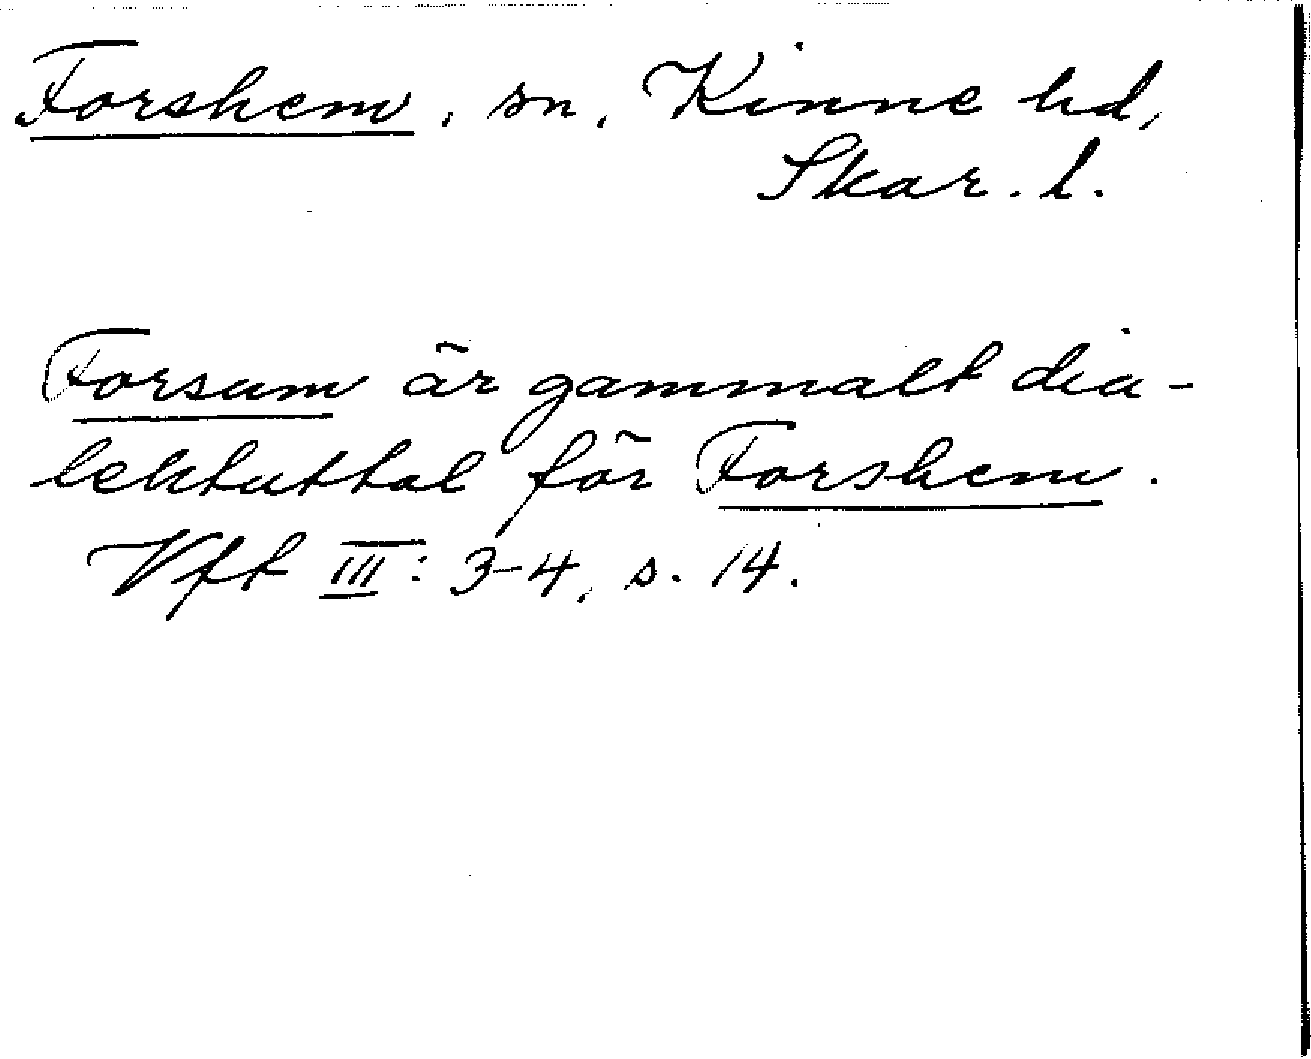 Forshem, sn, Kinne hd,
Skar. l.
Forsum är gammalt dia-
lektuttal för Forshem.
Vft III: 3-4, s. 14.